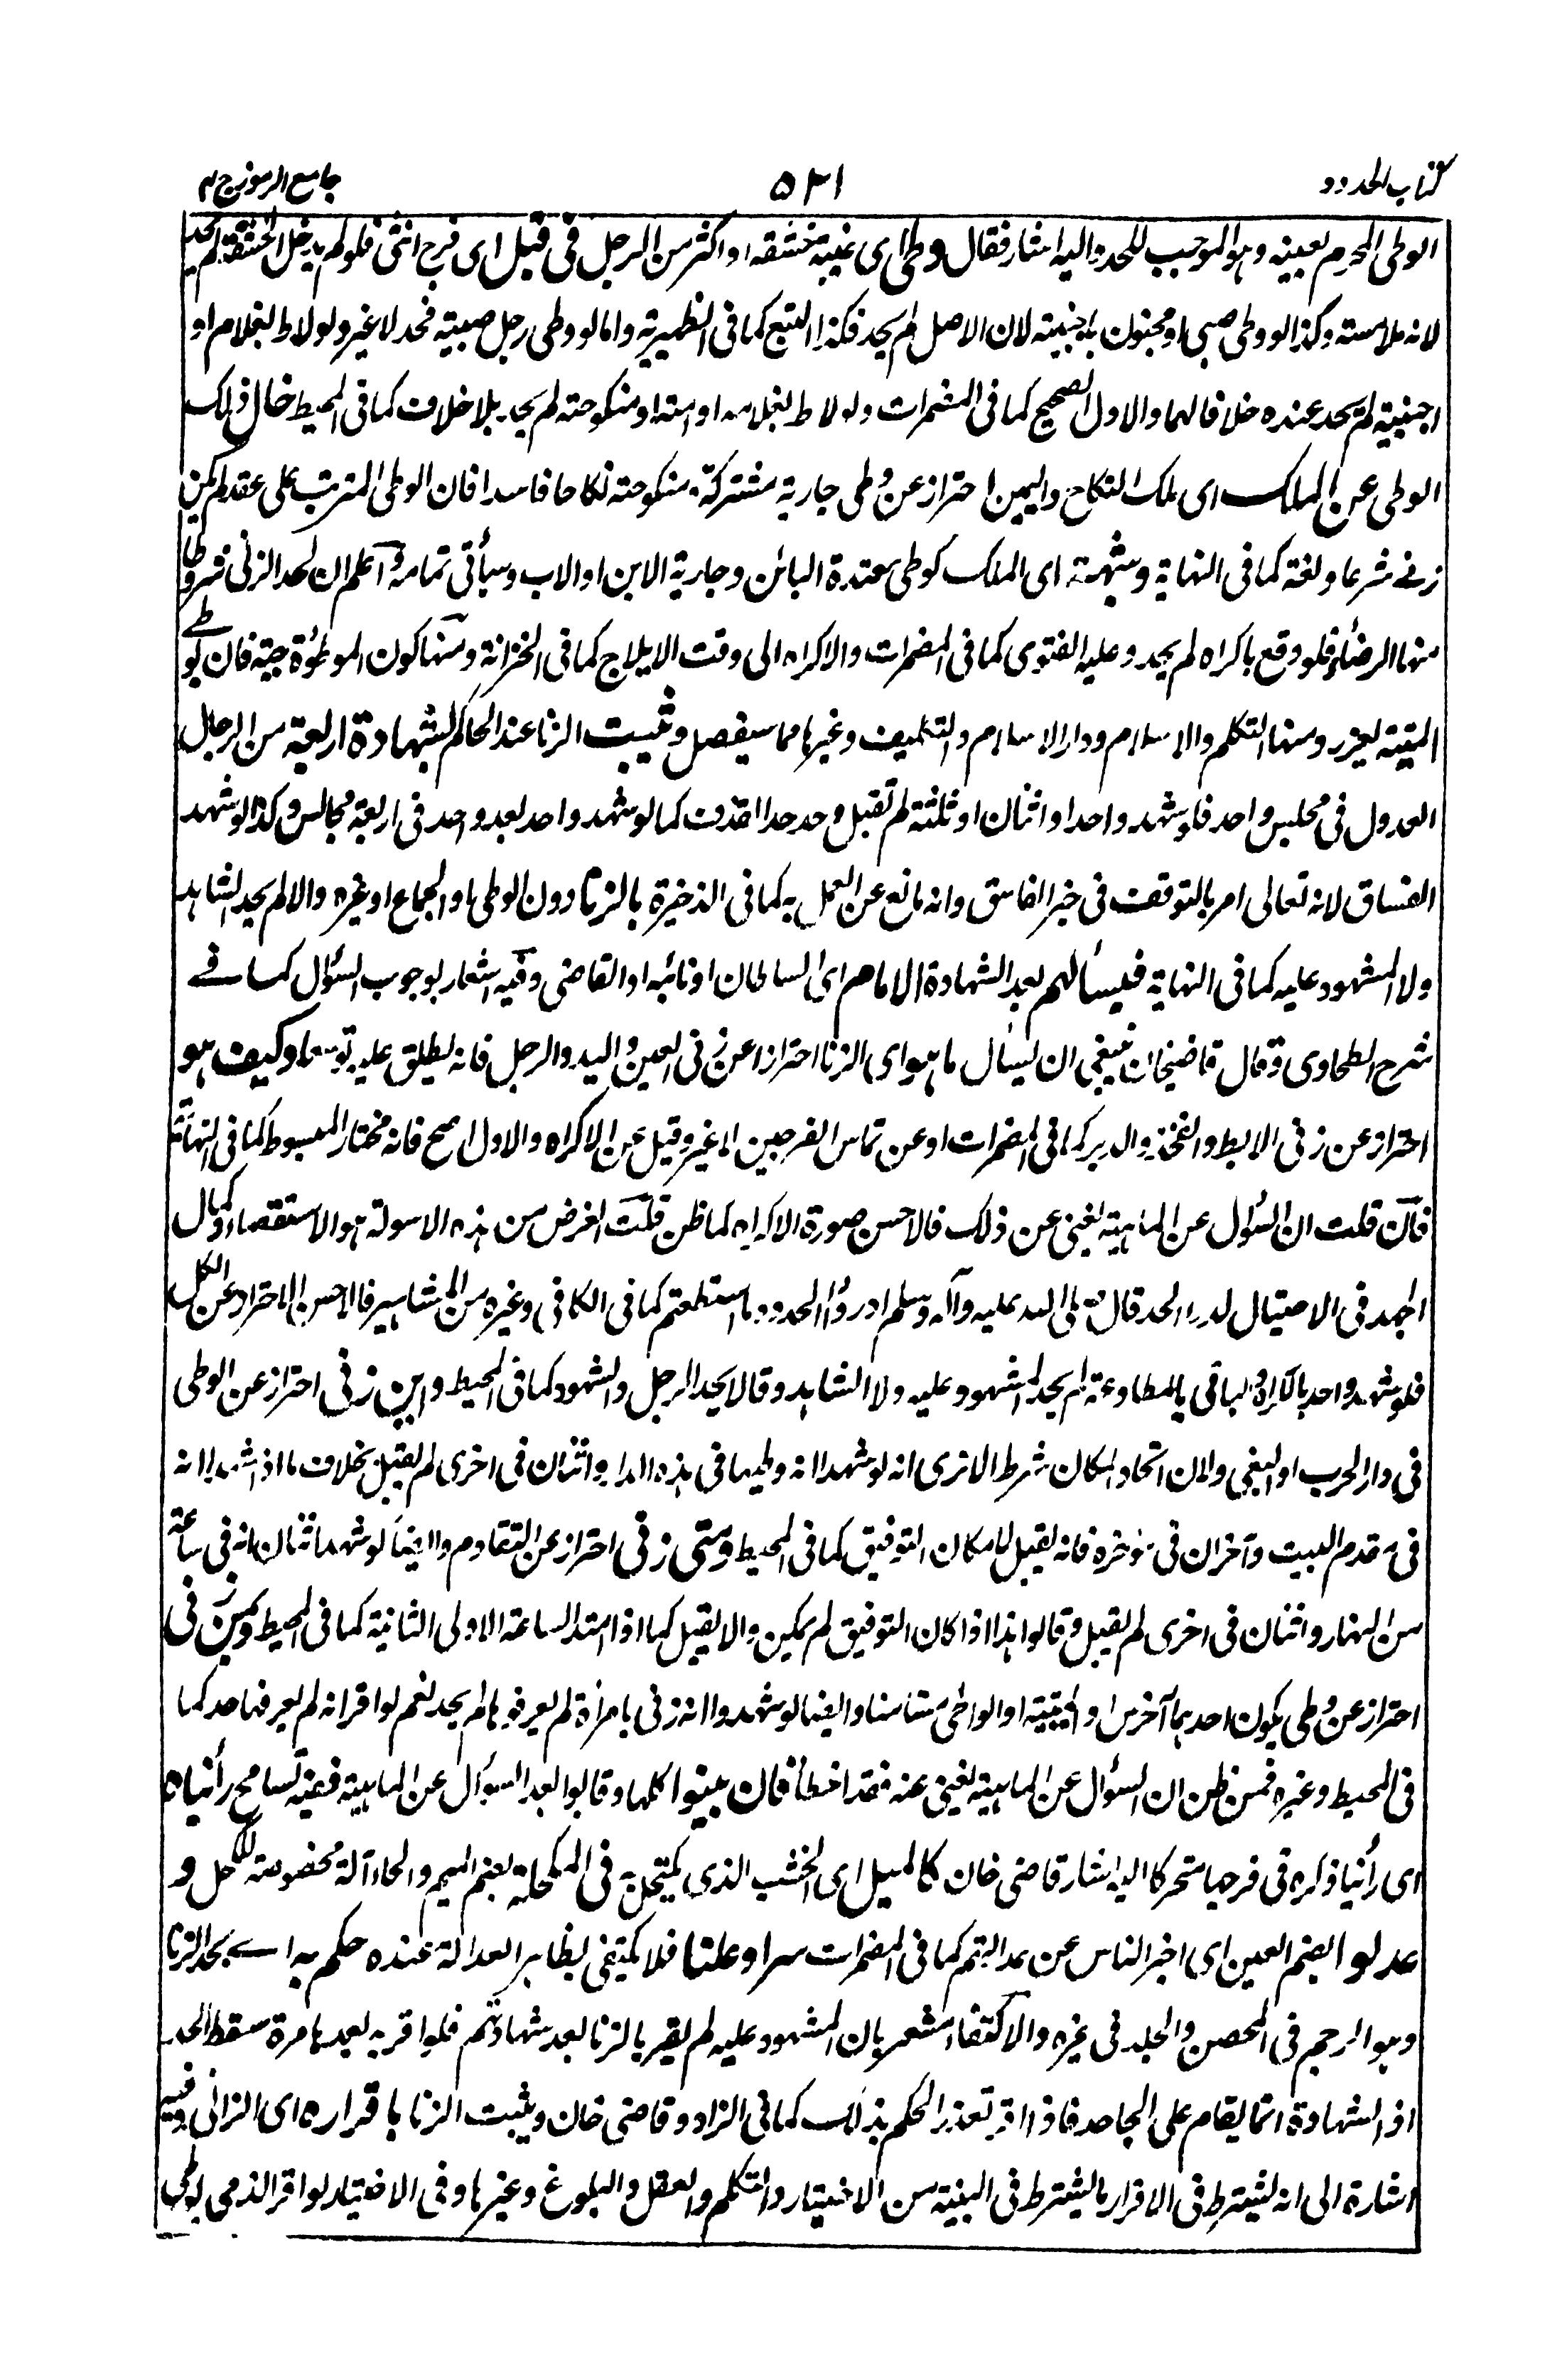 كتاب الحدود
٥٢١
جامع الرموز ج ٢
الوطی المحرم لعينه وهو الموجب للحد واليه اشار فقال وطی ای غيبة حشفة او اكثر من الرجل فی قبل ای فرج انثی فلو لم يدخل الحشفة لم يحد
لانه ملامسته وكذا لو وطی صبی او مجنون باجنبية لان الاصل لم يحد فكذا التبع كما فی الظهيرية واما لو وطی رجل صبية فحد لا غير ولو لاط بغلام او
اجنبية لم يحد عنده خلافا لهما والاول الصحيح كما فی المضمرات ولو لاط بغلامه او امته او منكوحته لم يحد بلا خلاف كما فی المحيط خال ذلك
الوطی عن الملك ای ملك النكاح واليمين احتراز عن وطی جارية مشتركة ومنكوحته نكاحا فاسدا فان الوطی المترتب علی عقد لم يكن
زنے شرعا ولغة كما فی النهاية وشبهته ای الملك كوطی معتدة البائن وجارية الابن او الاب وسيأتی تمامه وآعلم ان لحد الزنی شروطا
منها الرضاء فلو وقع باكراه لم يحد وعليه الفتوی كما فی المضمرات والاكراه الی وقت الايلاج كما فی الخزانة ومنها كون الموطوءة حية فان لو وطے
الميتة يعزر ومنها التكلم والاسلام ودار الاسلام والتكليف وغيرها مما سيفصل وثيبت الزنا عند الحاكم بشهادة اربعة من الرجال
العدول فی مجلس واحد فلو شهد واحد او اثنان او ثلثة لم تقبل وحد حد القذف كما لو شهد واحد بعد واحد فی اربعة مجالس وكذا لو شهد
الفساق لانه تعالی امر بالتوقف فی خبر الفاسق وانه مانع عن العمل به كما فی الذخيرة بالزنا دون الوطی او الجماع او غيره والا لم يحد الشاهد
ولا المشهود عليه كما فی النهاية فيسألهم بعد الشهادة الامام ای السلطان او نائبه او القاضی وفيه اشعار بوجوب السؤال كما فے
شرح الطحاوی وقال قاضيخان ينبغی ان يسأل ما هو ای الزنا احترازا عن زنی العين واليد والرجل فانه يطلق عليه توسعا وكيف هو
احتراز عن زنی الابط والفخذ والدبر كما فی المضمرات او عن تماس الفرجين لا غير وقيل عن الاكراه والاول اصح فانه مختار المبسوط كما فی النهاية
فان قلت ان السؤال عن الماهية يغنی عن ذلك فالاحسن صورة الاكراه كما ظن قلت الغرض من هذه الاسولة هو الاستقصاء وكمال
الجهد فی الاحتيال لدرء الحد قال صلی الله عليه وآله وسلم ادرؤا الحدود ما استطعتم كما فی الكافی وغيره من المشاهير فالاحسن الاحتراز عن الكل
فلو شهد واحد بالاكراه والباقی بالمطاوعة لم يحد المشهود عليه ولا الشاهد وقالا يحد الرجل والشهود كما فی المحيط واين زنی احتراز عن الوطی
فی دار الحرب او البغی ولان اتحاد المكان شرط الا تری انه لو شهدا انه وطيها فی هذه الدار واثنان فی اخری لم يقبل بخلاف ما اذا شهدا انه
فی مقدم البيت وآخران فی مؤخره فانه يقبل لامكان التوفيق كما فی المحيط ومتی زنی احتراز عن التقادم وايضا لو شهد اثنان انه فی ساعة
من النهار واثنان فی اخری لم يقبل وقالوا هذا اذا كان التوفيق لم يمكن والا يقبل كما اذا امتد الساعة الاولی الثانية كما فی المحيط وبمن زنی
احتراز عن وطی يكون احدهما آخرس او الميتة او الواطی مستامنا وايضا لو شهدوا انه زنی بامرأة لم يعرفوها لم يحد نعم لو اقر انه لم يعرفها حد كما
فی المحيط وغيره فمن ظن ان السؤال عن الماهية يغنی عنه فقد اخطأ فان بينوا كلها وقالوا بعد السؤال عن الماهية ففيه تسامح رأيناه
ای رأينا ذكره فی فرجها متحركا اليه اشار قاضی خان كالميل ای الخشب الذی يكتحل به فی المكحلة بضم الميم والحاء آلة مخصوصة للكحل و
عدلوا بضم العين ای اخبر الناس عن عدالتهم كما فی المضمرات سرا وعلنا فلا يكتفی بظاهر العدالة عنده حكم به اے بحد الزنا
وهو الرجم فی المحصن والجلد فی غيره والاكتفاء مشعر بان المشهود عليه لم يقر بالزنا بعد شهادتهم فلو اقر به بعدها مرة سقط الحد
اذ الشهادة انما يقام علی الجاحد فاذا اقر تعذر الحكم بذلك كما فی الزاد وقاضی خان ويثبت الزنا باقراره ای الزانی وفيه
اشارة الی انه يشترط فی الاقرار ما يشترط فی البنية من الاختيار والتكلم والعقل والبلوغ وغيرها وفی الاختيار لو اقر الذمی بوطی